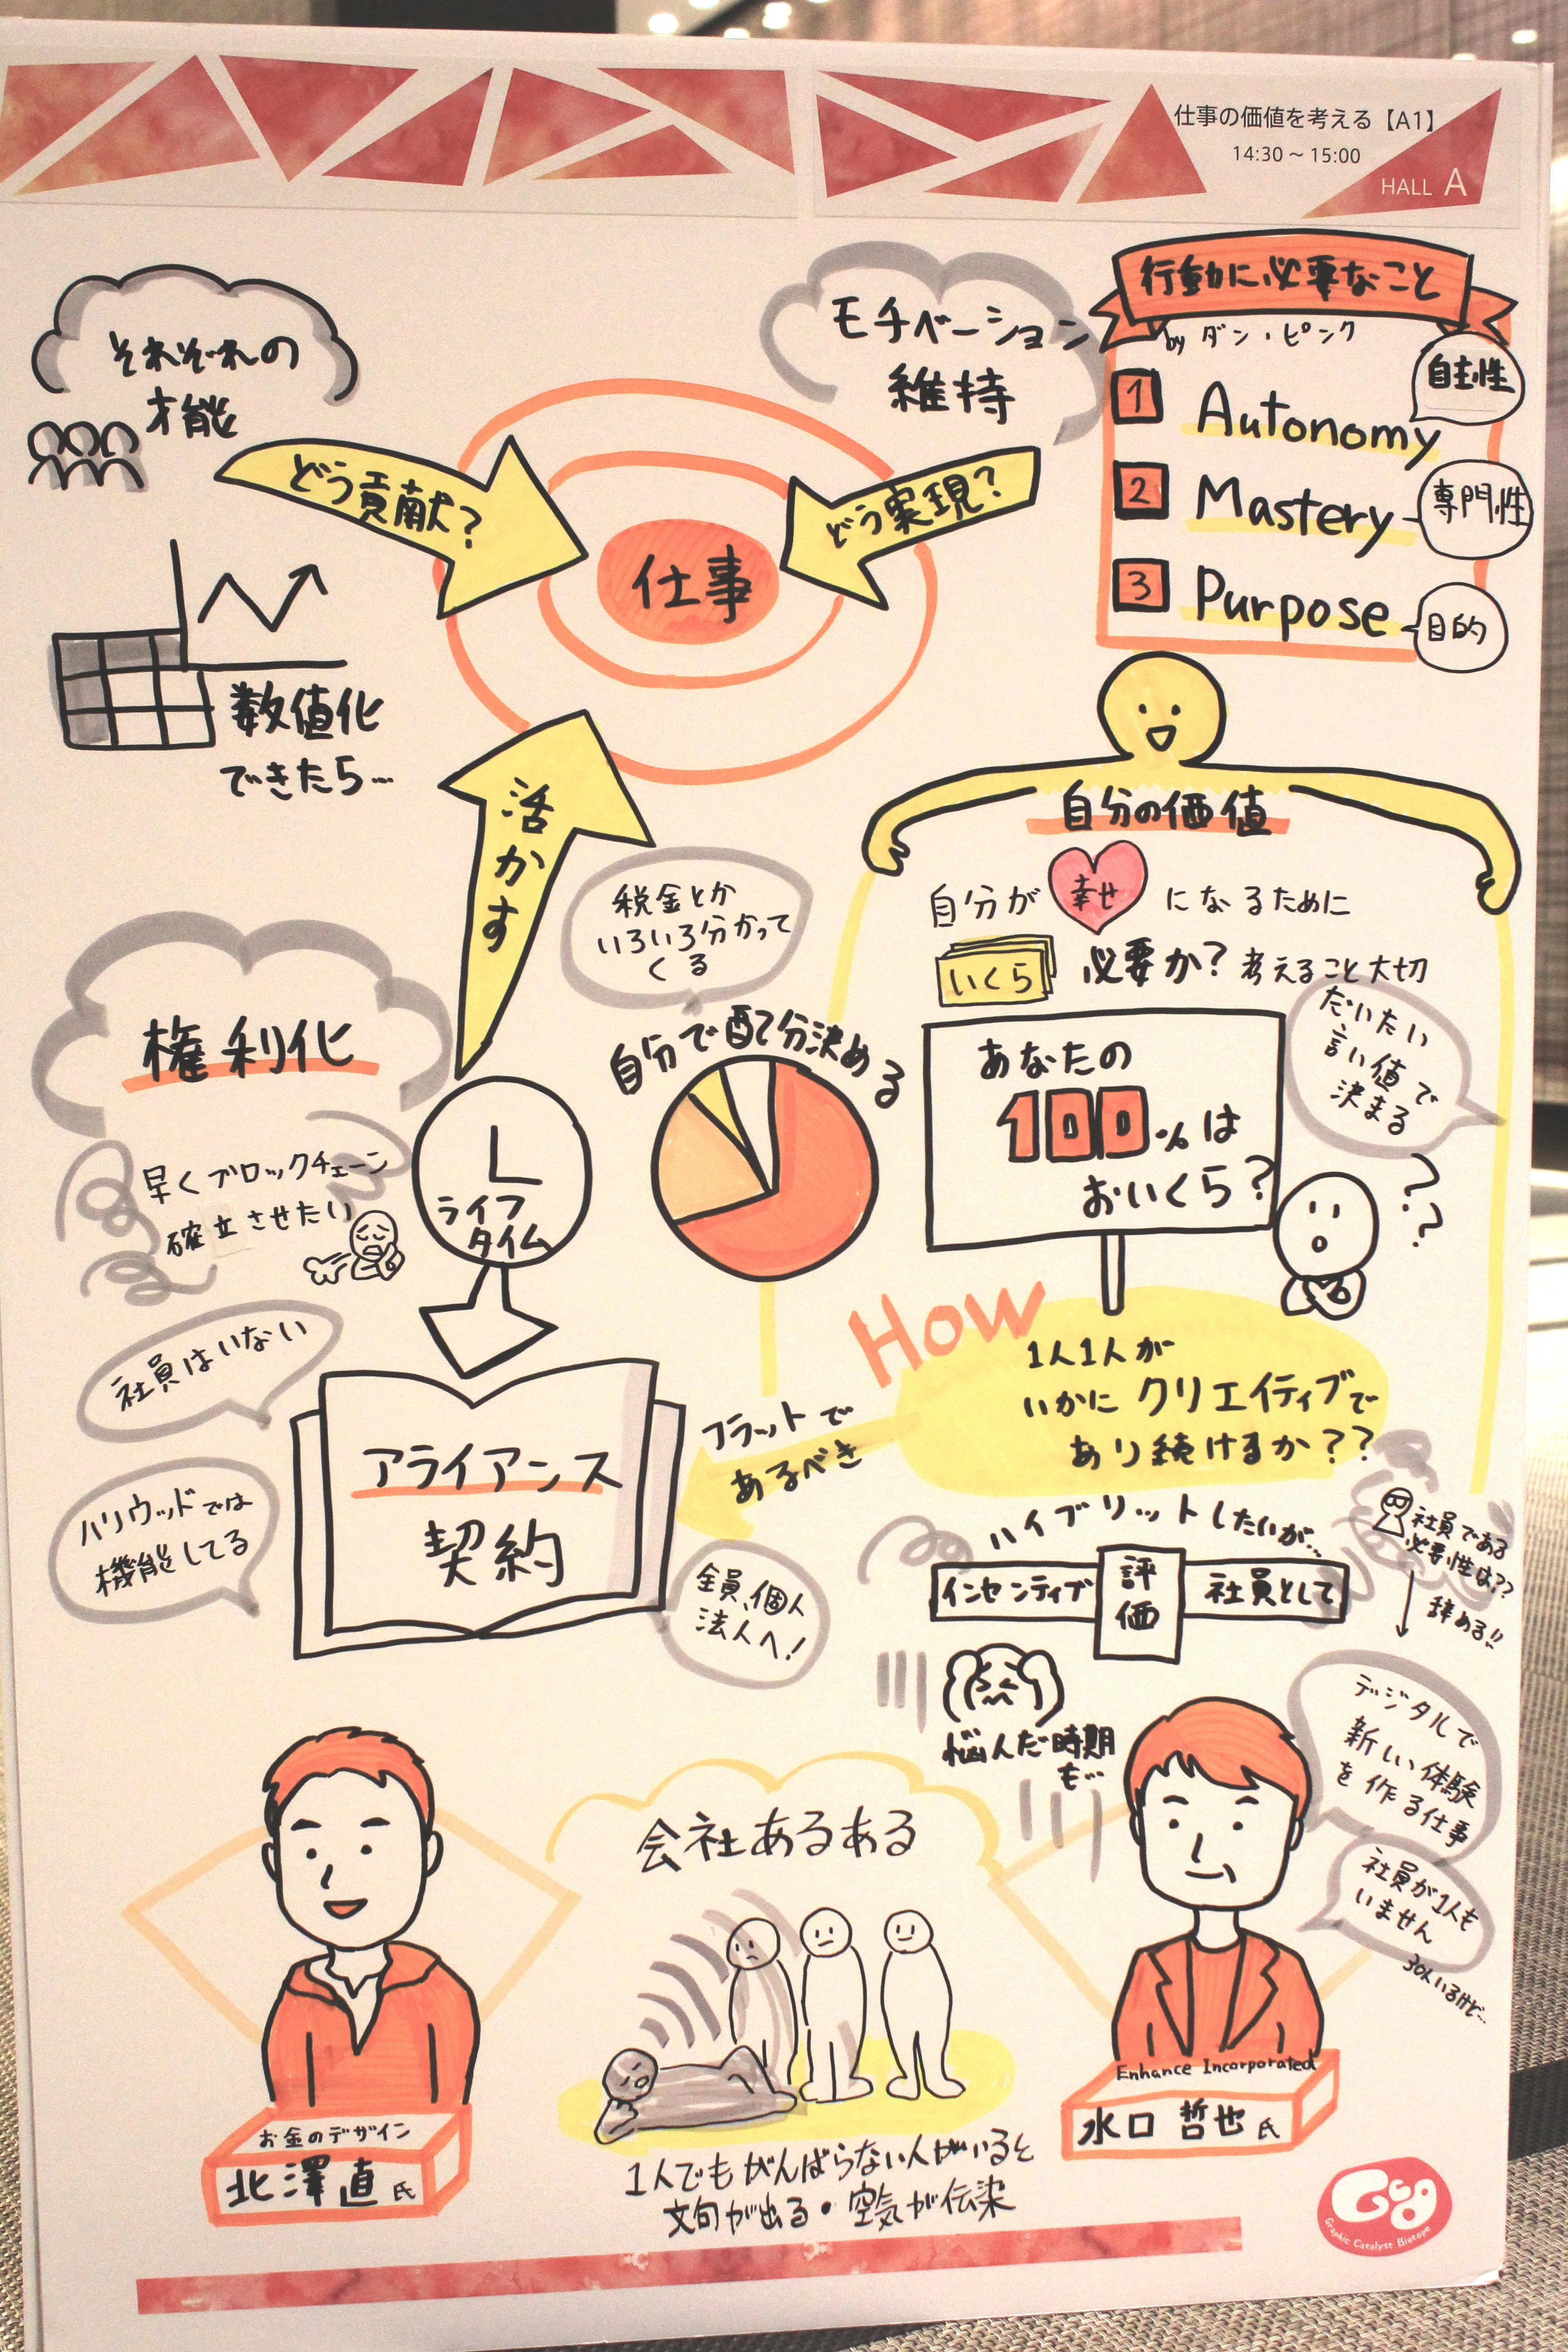 仕事の価値を考える【A1】
14:30 ~ 15:00
HALL A
それぞれの
才能
どう貢献?
仕事
モチベーション
維持
どう実現?
行動に必要なこと
by ダン・ピンク
1 Autonomy
自主性
2 Mastery
専門性
3 Purpose
目的
数値化
できたら…
活かす
税金とか
いろいろ分かって
くる
自分で配分決める
自分の価値
自分が幸せになるために
いくら必要か?考えること大切
だいたい
言い値で
決まる
あなたの
100%は
おいくら?
??
権利化
早くブロックチェーン
確立させたい
ライフ
タイム
社員はいない
ハリウッドでは
機能してる
アライアンス
契約
フラットで
あるべき
全員、個人
法人へ!
How
1人1人が
いかにクリエイティブで
あり続けるか??
ハイブリットしたいが…
インセンティブ
評価
社員として
社員である
必要性は??
辞める!!
悩んだ時期
も…
デジタルで
新しい体験
を作る仕事
社員が1人も
いません
30人いるけど…
会社あるある
1人でもがんばらない人がいると
文句が出る・空気が伝染
お金のデザイン
北澤直氏
Enhance Incorporated
水口哲也氏
GCB
Graphic Catalyst Biotope